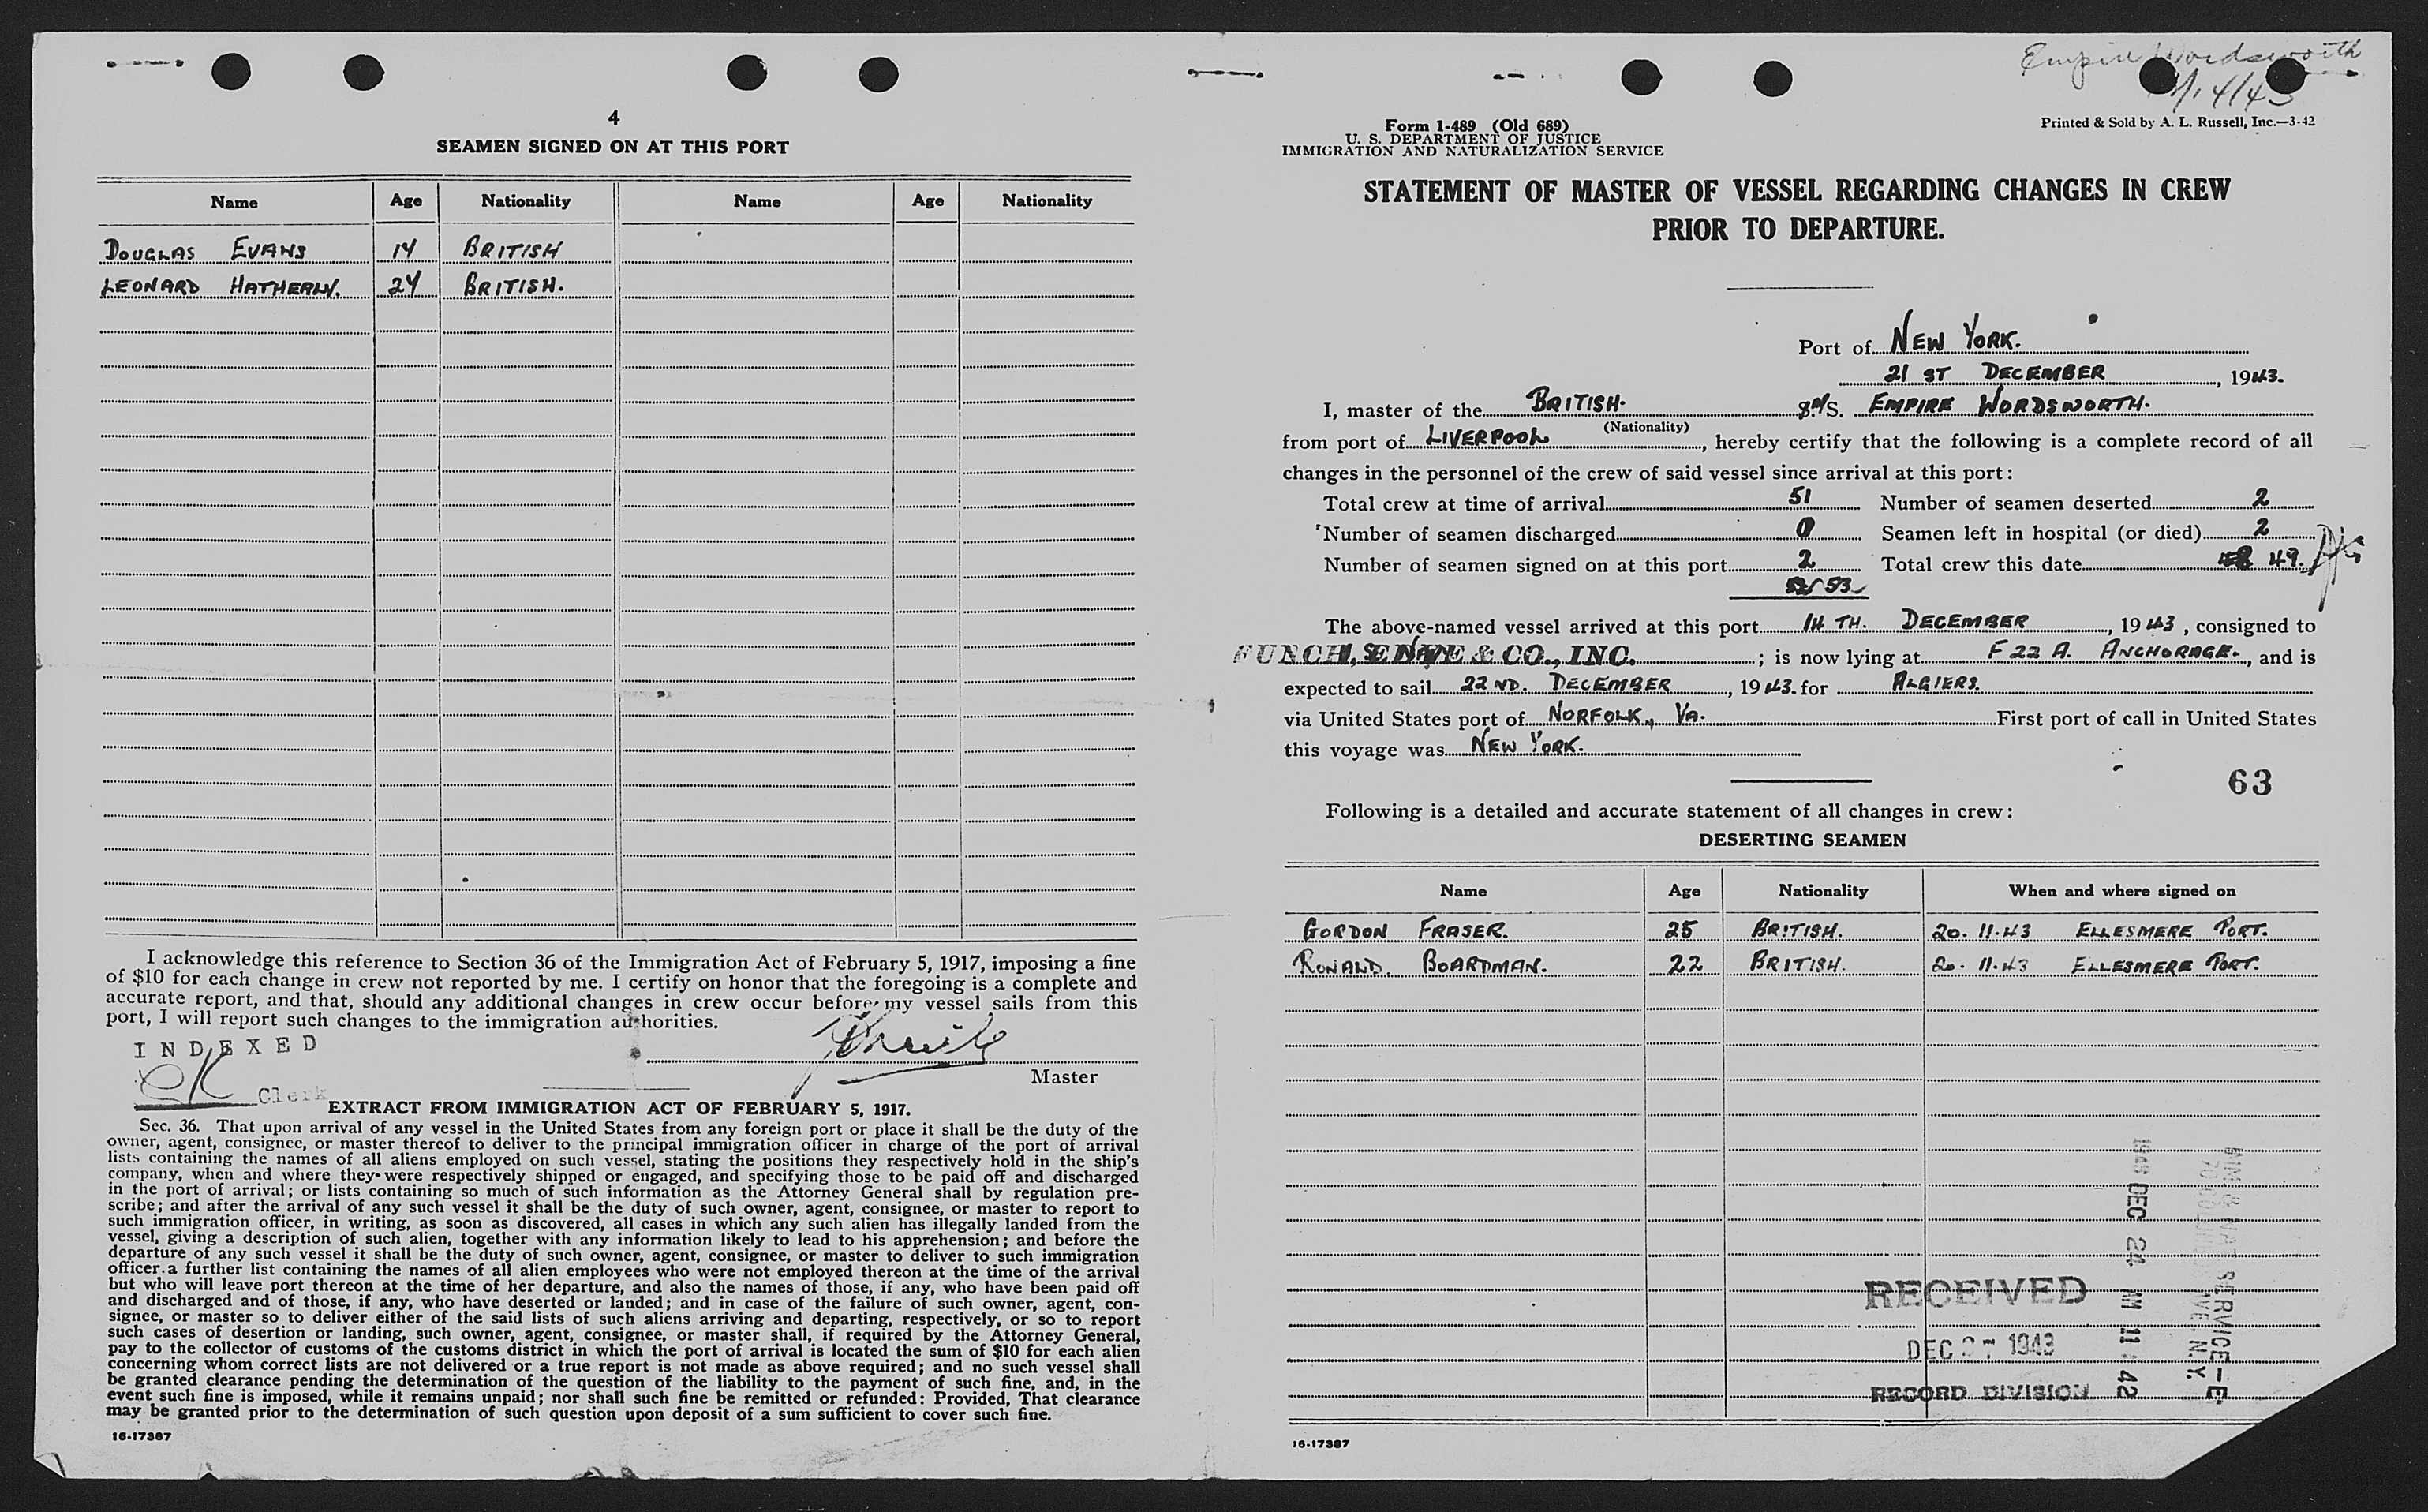 4
SEAMEN SIGNED ON AT THIS PORT
Name Age Nationality Name Age Nationality
DOUGLAS EVANS 14 BRITISH
LEONARD HATHERLY. 24 BRITISH.
I acknowledge this reference to Section 36 of the Immigration Act of February 5, 1917, imposing a fine
of $10 for each change in crew not reported by me. I certify on honor that the foregoing is a complete and
accurate report, and that, should any additional changes in crew occur before my vessel sails from this
port, I will report such changes to the immigration authorities.
INDEXED
Master
Clerk
EXTRACT FROM IMMIGRATION ACT OF FEBRUARY 5, 1917.
Sec. 36. That upon arrival of any vessel in the United States from any foreign port or place it shall be the duty of the
owner, agent, consignee, or master thereof to deliver to the principal immigration officer in charge of the port of arrival
lists containing the names of all aliens employed on such vessel, stating the positions they respectively hold in the ship's
company, when and where they were respectively shipped or engaged, and specifying those to be paid off and discharged
in the port of arrival; or lists containing so much of such information as the Attorney General shall by regulation pre-
scribe; and after the arrival of any such vessel it shall be the duty of such owner, agent, consignee, or master to report to
such immigration officer, in writing, as soon as discovered, all cases in which any such alien has illegally landed from the
vessel, giving a description of such alien, together with any information likely to lead to his apprehension; and before the
departure of any such vessel it shall be the duty of such owner, agent, consignee, or master to deliver to such immigration
officer a further list containing the names of all alien employees who were not employed thereon at the time of the arrival
but who will leave port thereon at the time of her departure, and also the names of those, if any, who have been paid off
and discharged and of those, if any, who have deserted or landed; and in case of the failure of such owner, agent, con-
signee, or master so to deliver either of the said lists of such aliens arriving and departing, respectively, or so to report
such cases of desertion or landing, such owner, agent, consignee, or master shall, if required by the Attorney General,
pay to the collector of customs of the customs district in which the port of arrival is located the sum of $10 for each alien
concerning whom correct lists are not delivered or a true report is not made as above required; and no such vessel shall
be granted clearance pending the determination of the question of the liability to the payment of such fine, and, in the
event such fine is imposed, while it remains unpaid; nor shall such fine be remitted or refunded: Provided, That clearance
may be granted prior to the determination of such question upon deposit of a sum sufficient to cover such fine.
16-17387
Empire Wordsworth
Form I-489 (Old 689)
U. S. DEPARTMENT OF JUSTICE
IMMIGRATION AND NATURALIZATION SERVICE
Printed & Sold by A. L. Russell, Inc.—3-42
STATEMENT OF MASTER OF VESSEL REGARDING CHANGES IN CREW
PRIOR TO DEPARTURE.
Port of NEW YORK.
21 ST DECEMBER, 1943.
I, master of the BRITISH. S. EMPIRE WORDSWORTH.
(Nationality)
from port of LIVERPOOL, hereby certify that the following is a complete record of all
changes in the personnel of the crew of said vessel since arrival at this port:
Total crew at time of arrival 51 Number of seamen deserted 2
Number of seamen discharged 0 Seamen left in hospital (or died) 2
Number of seamen signed on at this port 2 Total crew this date 49.
53
The above-named vessel arrived at this port 14 TH. DECEMBER, 1943, consigned to
FUNCH, EDYE & CO., INC.; is now lying at F 22 A. ANCHORAGE, and is
expected to sail 22 ND. DECEMBER, 1943. for ALGIERS.
via United States port of NORFOLK, VA. First port of call in United States
this voyage was NEW YORK.
63
Following is a detailed and accurate statement of all changes in crew:
DESERTING SEAMEN
Name Age Nationality When and where signed on
GORDON FRASER. 25 BRITISH. 20. 11. 43 ELLESMERE PORT.
RONALD. BOARDMAN. 22 BRITISH. 20. 11. 43 ELLESMERE PORT.
1943 DEC 24 AM 11 42
SERVICE-E
N.Y.
RECEIVED
DEC 27 1943
RECORD DIVISION
16-17387